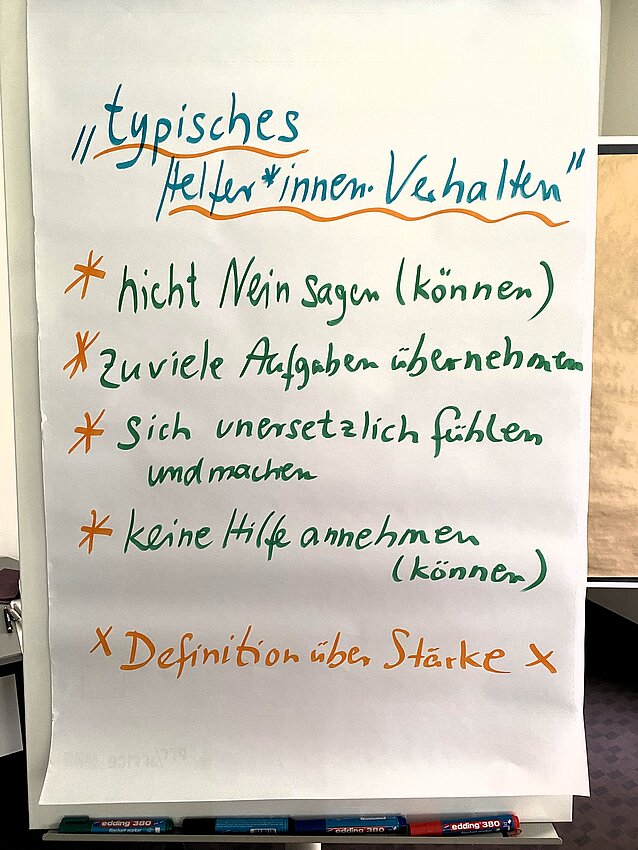 „typisches
Helfer*innen-Verhalten"
* nicht Nein sagen (können)
* zuviele Aufgaben übernehmen
* sich unersetzlich fühlen
und machen
* keine Hilfe annehmen
(können)
x Definition über Stärke x
edding 380
edding 380